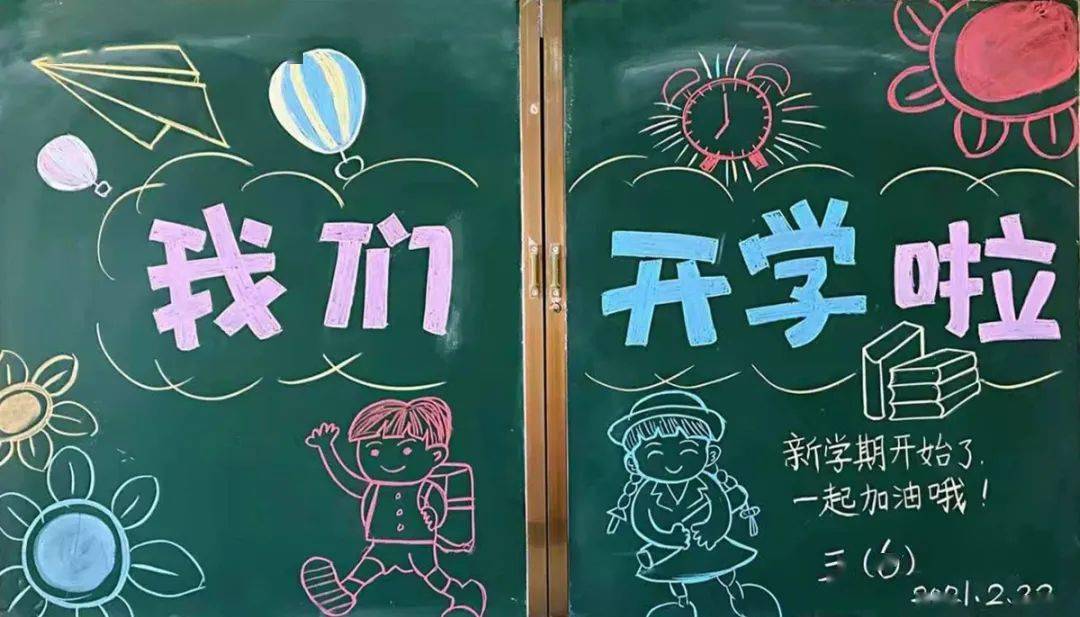 我们开学啦
新学期开始了,
一起加油哦!
三(6)
2021.2.22